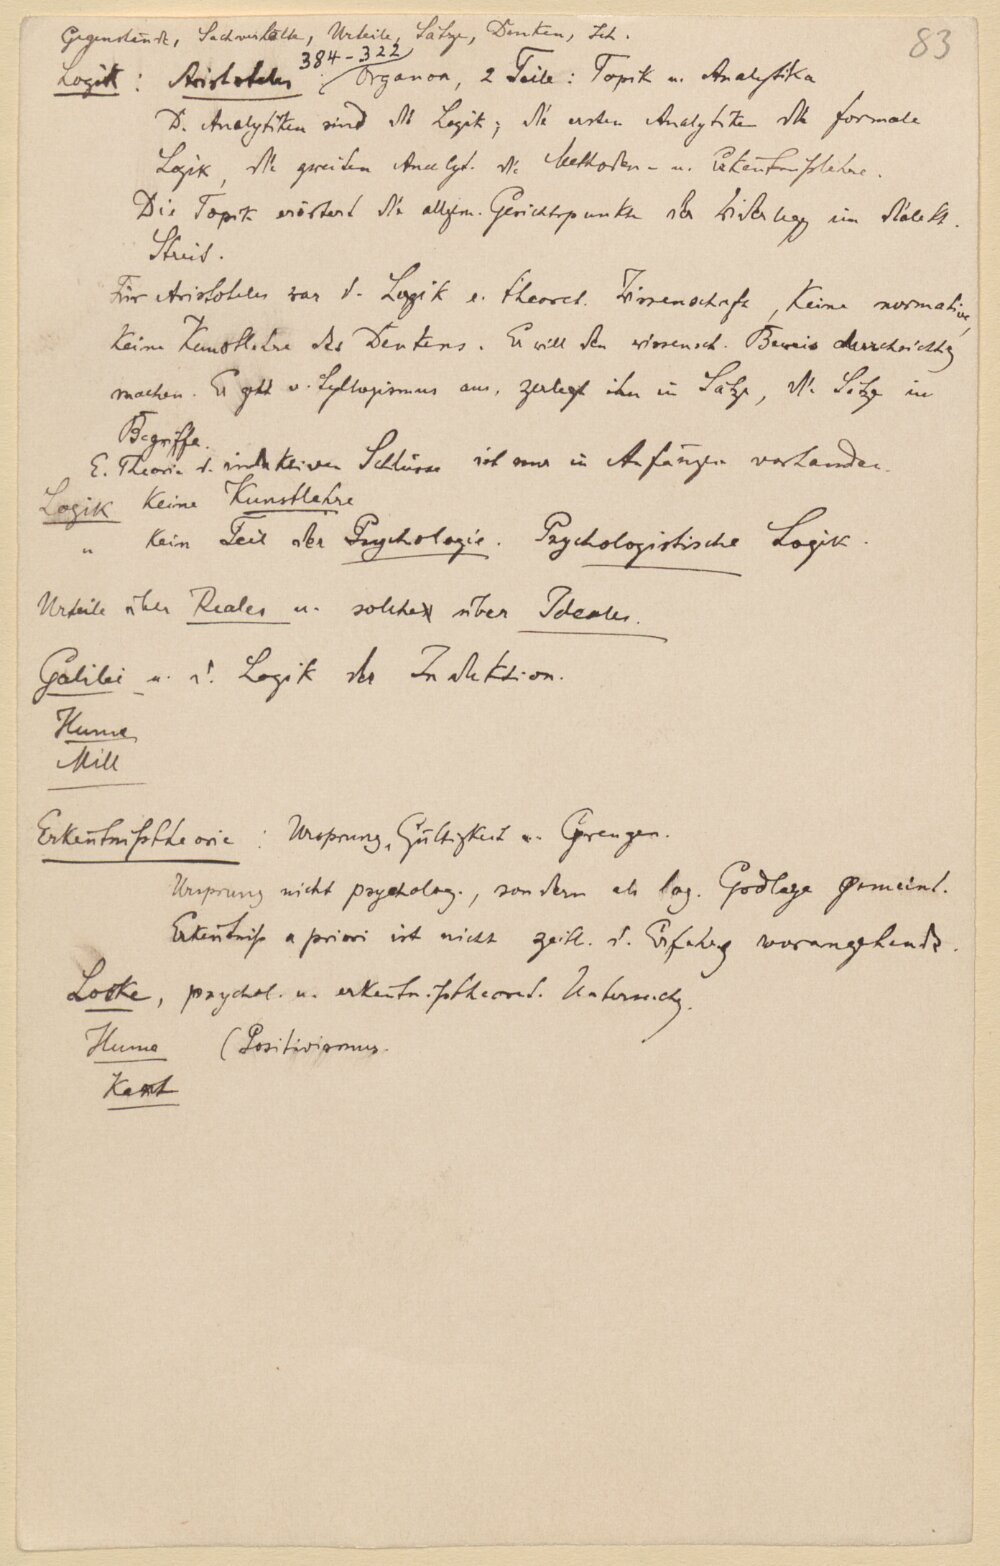 83
Gegenstände, Sachverhalte, Urteile, Sätze, Denken, Ich.
384-322
Logik: Aristoteles Organon, 2 Teile: Topik u. Analytika
D. Analytiken sind die Logik; die ersten Analytiken die formale
Logik, die zweiten Analyt. die Methoden- u. Erkenntnißlehre.
Die Topik erörtert die allgem. Gesichtspunkte der Widerlegg im dialekt.
Streit.
Für Aristoteles war d. Logik e. theoret. Wissenschaft, keine normative,
keine Kunstlehre des Denkens. Er will den wissensch. Beweis durchsichtig
machen. Er geht v. Syllogismus aus, zerlegt ihn in Sätze, die Sätze in
Begriffe.
E. Theorie d. induktiven Schlüsse ist nur in Anfängen vorhanden.
Logik keine Kunstlehre
" kein Teil der Psychologie. Psychologistische Logik.
Urteile über Reales u. solche über Ideales.
Galilei u. d. Logik der Induktion.
Hume
Mill
Erkenntnißtheorie: Ursprung, Gültigkeit u. Grenzen.
Ursprung nicht psycholog., sondern als log. Gdlage gemeint.
Erkenntniß a priori ist nicht zeitl. d. Erfahrg vorangehende.
Locke, psychol. u. erkenntnißtheoret. Untersuchg.
Hume (Positivismus.
Kant